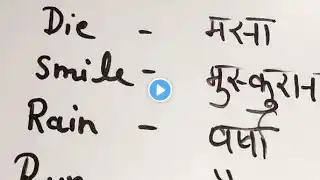 Die - मरना
Smile - मुस्कुरान
Rain - वर्षा